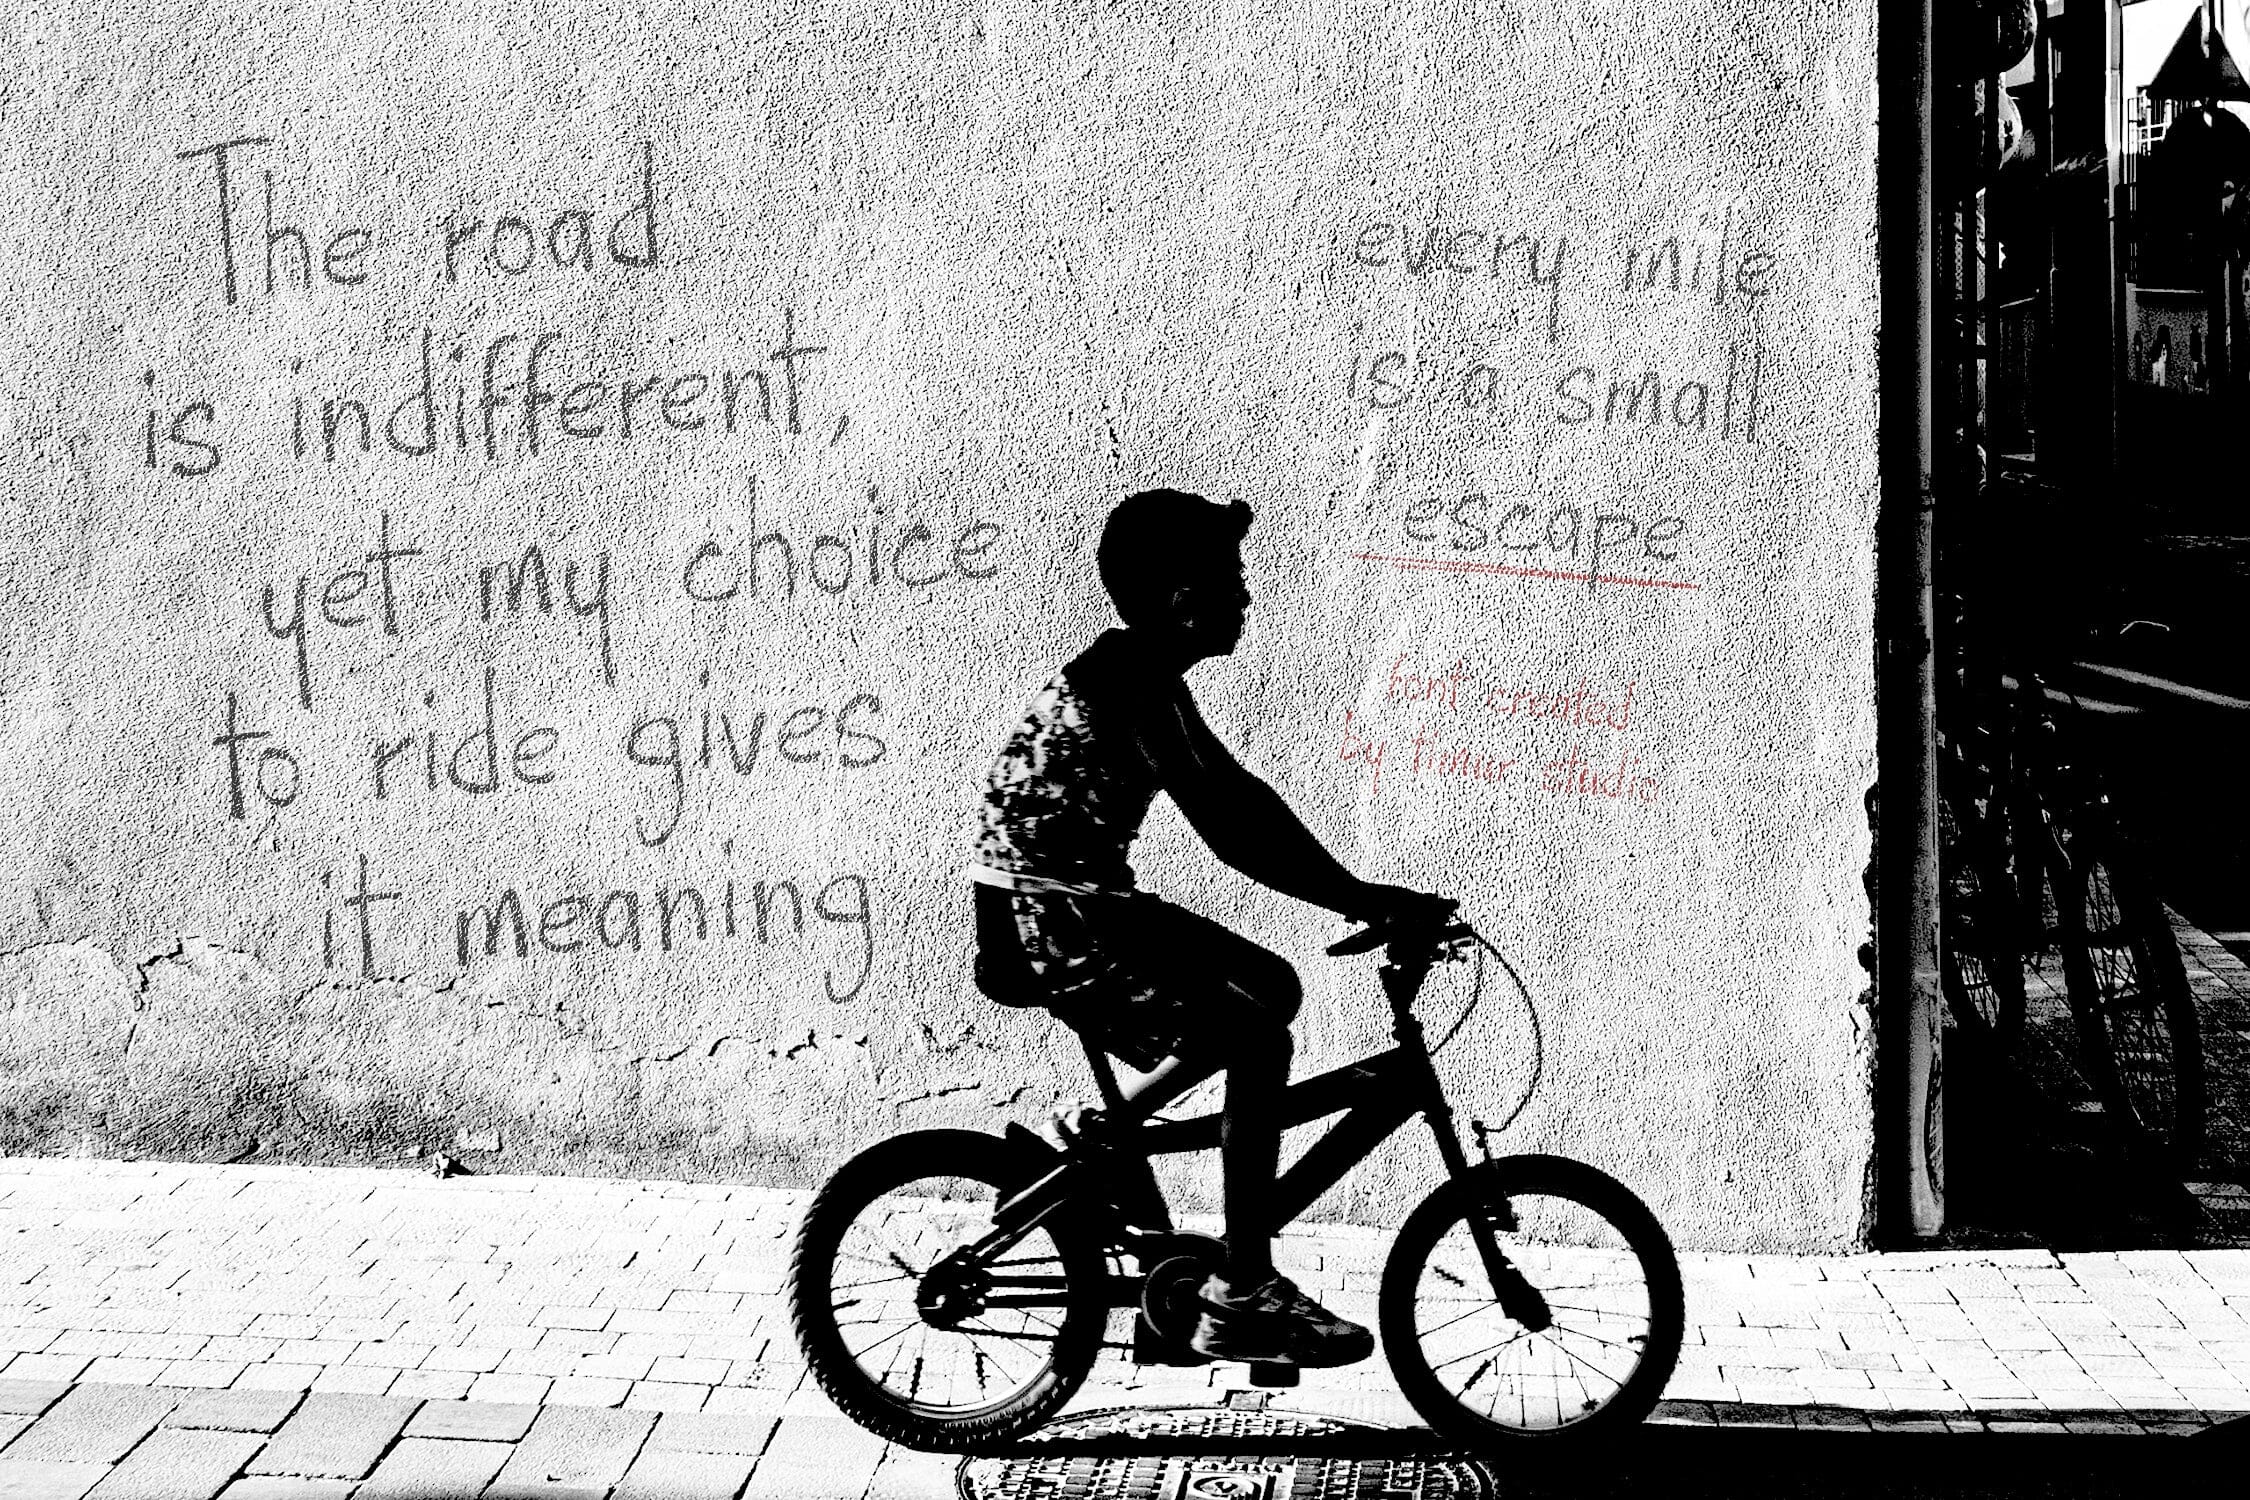 The road
is indifferent,
yet my choice
to ride gives
it meaning
every mile
is a small
escape
font created
by timur studio